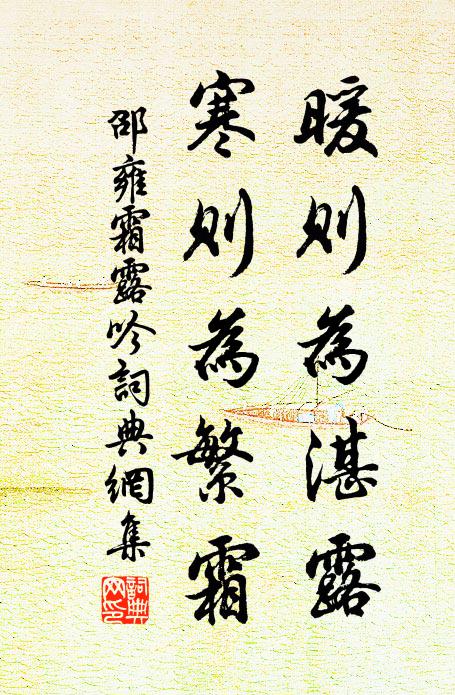 暖則為湛露
寒則為繁霜
邵雍霜露吟詞典網集
詞典網印